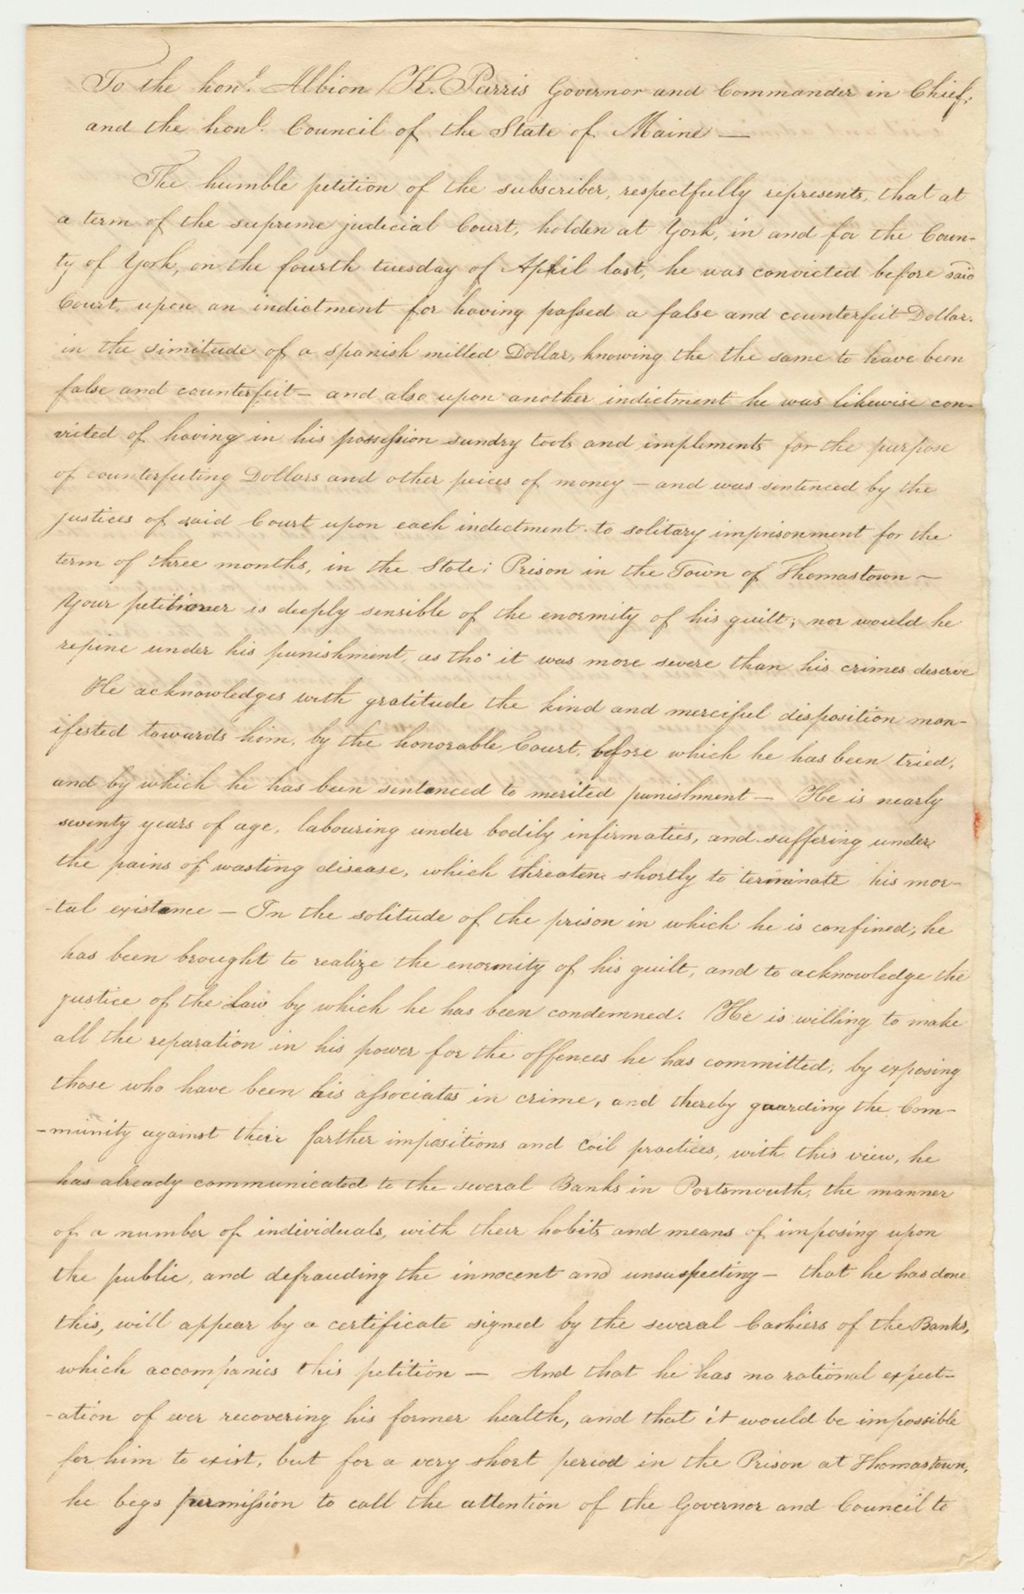 To the hon.l Albion K. Parris Governor and Commander in Chief,
and the hon.l Council of the State of Maine —
The humble petition of the subscriber, respectfully represents, that at
a term of the supreme judicial Court, holden at York, in and for the Coun-
ty of York, on the fourth tuesday of April last, he was convicted before said
Court, upon an indictment for having passed a false and counterfeit Dollar.
in the similitude of a Spanish milled Dollar, knowing the the same to have been
false and counterfeit — and also upon another indictment he was likewise con-
victed of having in his possession sundry tools and implements for the purpose
of counterfeiting Dollars and other peices of money — and was sentenced by the
justices of said Court upon each indictment to solitary imprisonment for the
term of three months, in the State Prison in the Town of Thomastown —
Your petitioner is deeply sensible of the enormity of his guilt; nor would he
repine under his punishment, as tho' it was more severe than his crimes deserve
He acknowledges with gratitude the kind and merciful disposition man-
ifested towards him, by the honorable Court, before which he has been tried,
and by which he has been sentenced to merited punishment — He is nearly
seventy years of age, labouring under bodily infirmaties, and suffering under
the pains of wasting disease, which threatens shortly to terminate his mor-
-tal existence — In the solitude of the prison in which he is confined, he
has been brought to realize the enormity of his guilt, and to acknowledge the
justice of the Law by which he has been condemned. He is willing to make
all the reparation in his power for the offences he has committed, by exposing
those who have been his associates in crime, and thereby guarding the Com-
-munity against their farther impositions and evil practices, with this view, he
has already communicated to the several Banks in Portsmouth, the manner
of a number of individuals, with their habits and means of imposing upon
the public, and defrauding the innocent and unsuspecting — that he has done
this, will appear by a certificate signed by the several Cashiers of the Banks,
which accompanies this petition — And that he has no rational expect-
-ation of ever recovering his former health, and that it would be impossible
for him to exist, but for a very short period in the Prison at Thomastown,
he begs permission to call the attention of the Governor and Council to